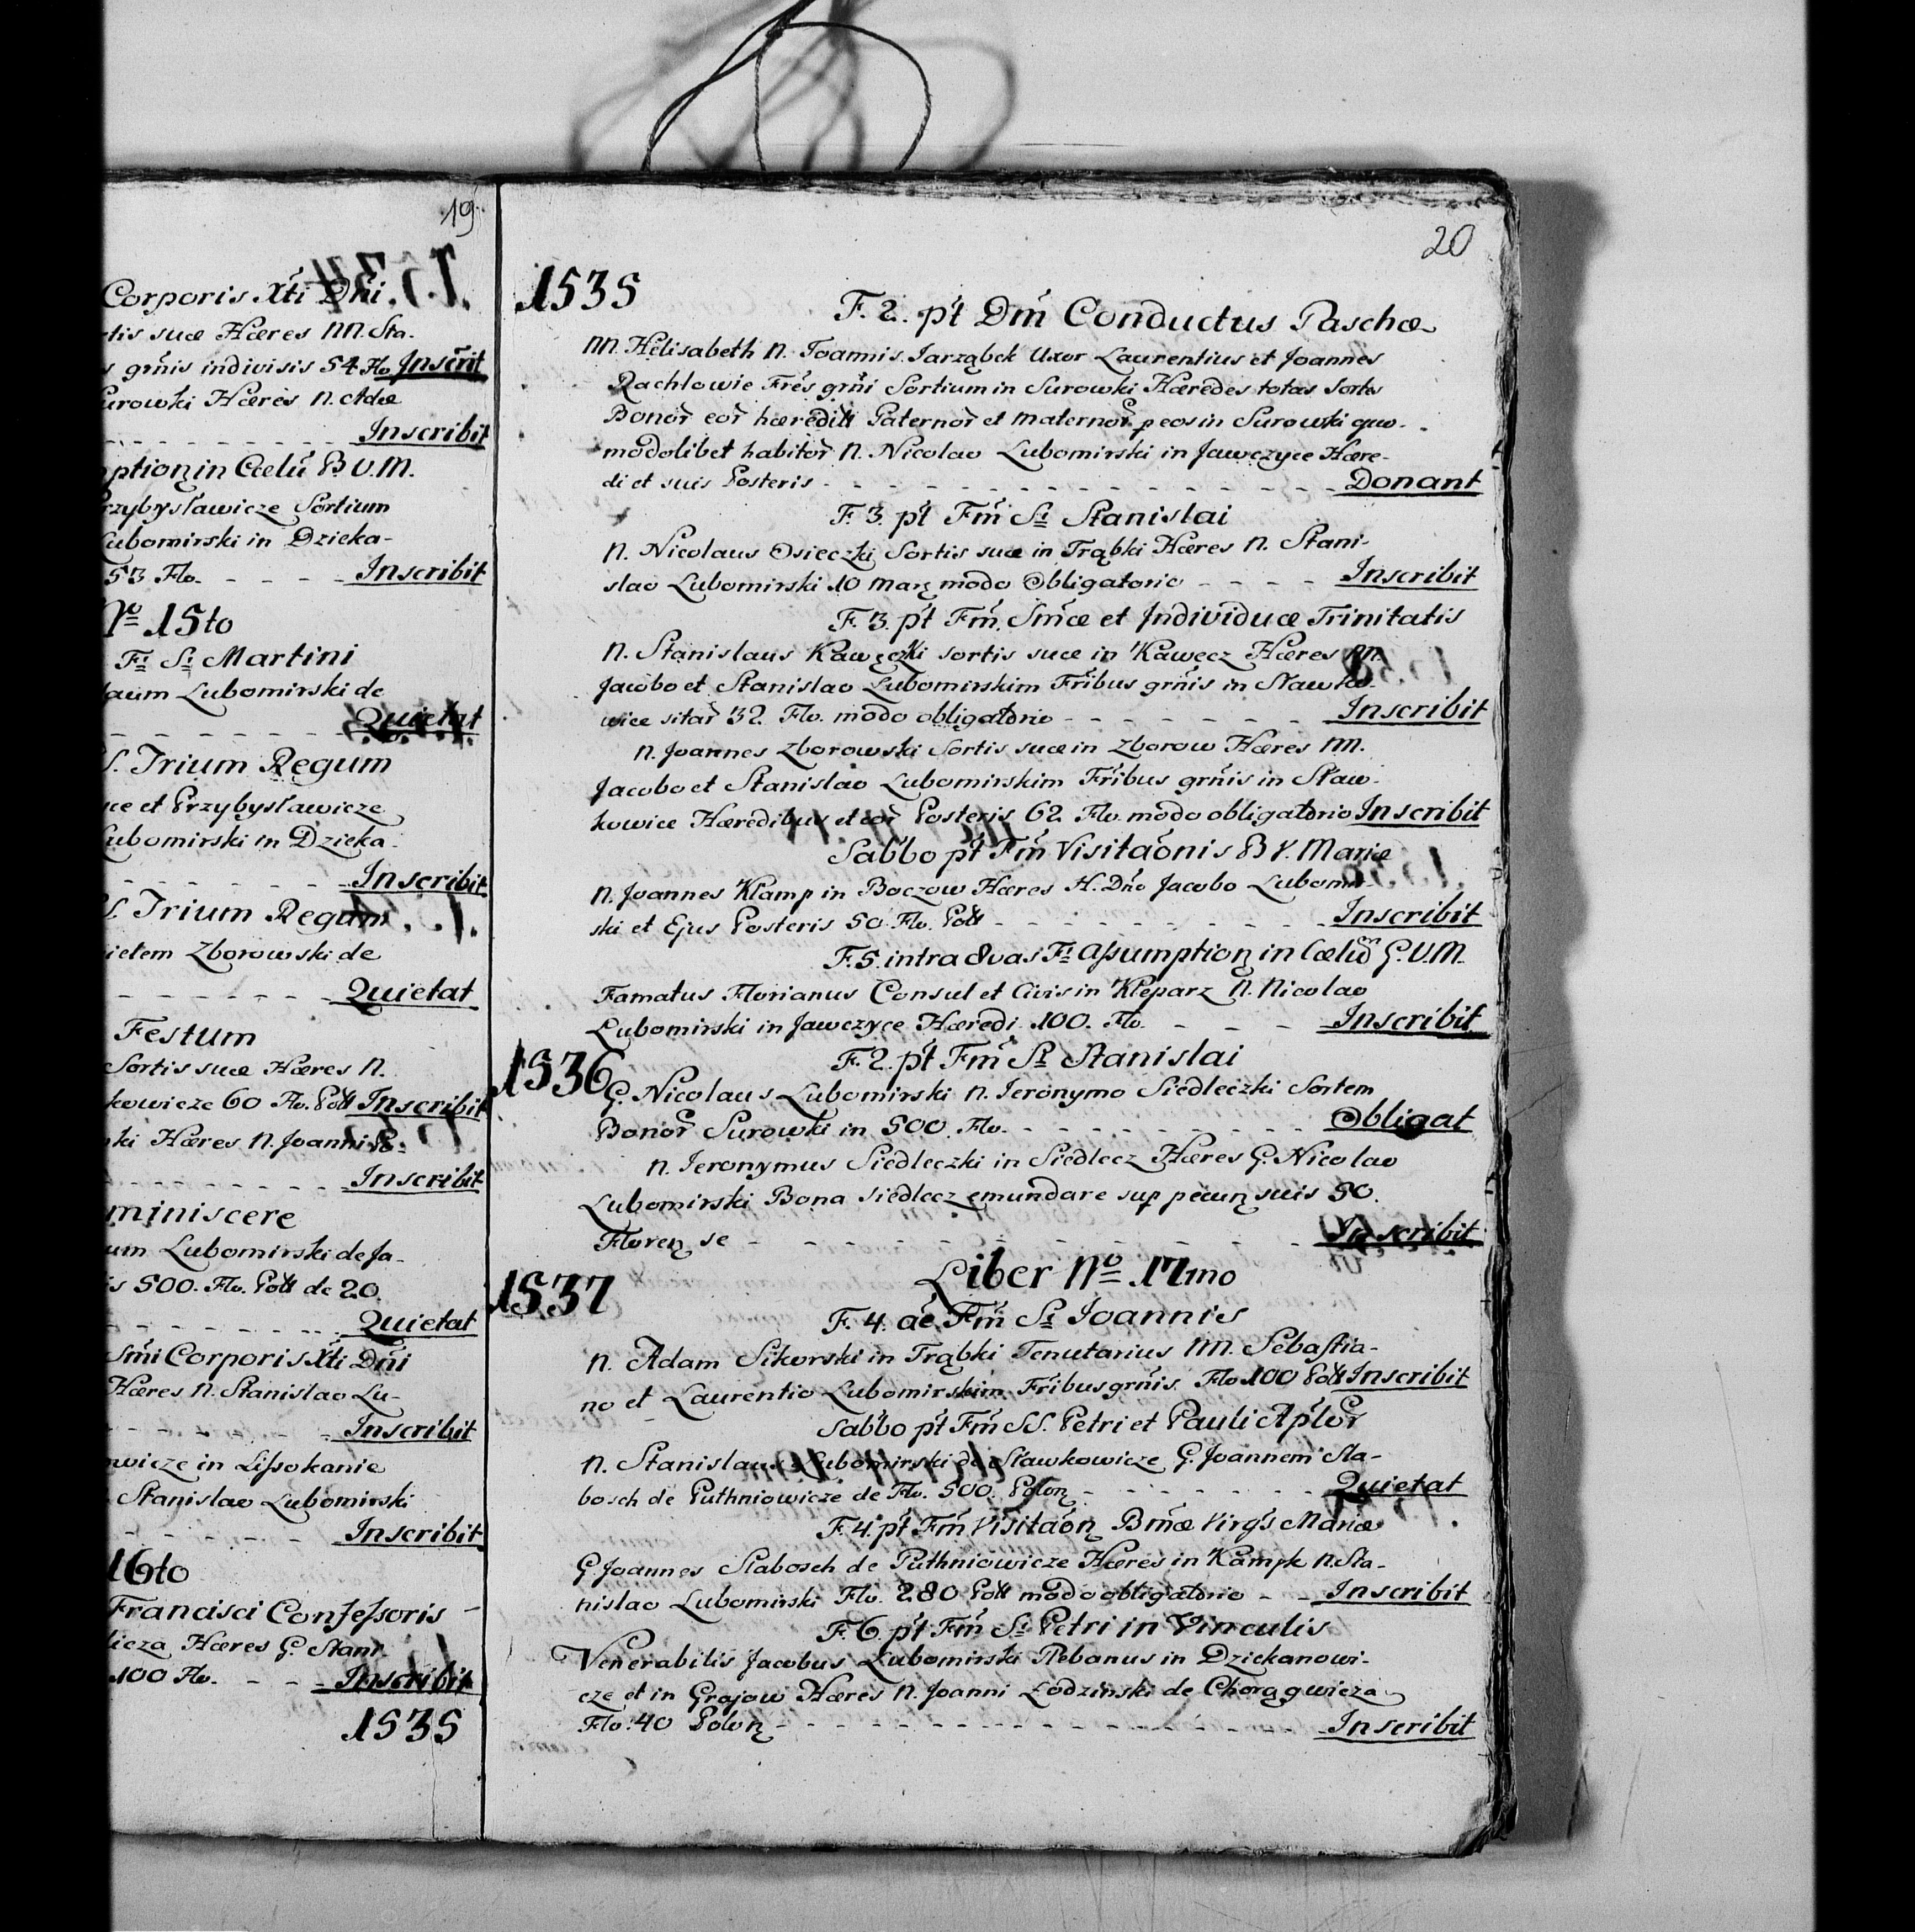 19.
Corporis Xti Dñi
rtis suæ Hæres NN. Sta-
s grñis indivisis 54 Flo Inscrit
Surowki Hæres N. Adæ
- - - Inscribit
ption in Cœlũ B.V.M.
rzybysławicze Sortium
Lubomirski in Dzieka-
53 Flo. - - - Inscribit
No 15to
Fi Si Martini
laum Lubomirski de
- - - Quietat
S. Trium Regum
ice et Przybysławicze
Lubomirski in Dzieka-
- - - Inscribit
S. Trium Regum
ietem Zborowski de
- - - Quietat
Festum
Sortis suæ Hæres N.
kowicze 60 Flo. Poll Inscribit
ski Hæres N. Joanni
- - - Inscribit
miniscere
um Lubomirski de Ja-
is 500. Flo. Poll de 20.
- - - Quietat
Smi Corporis Xti Dñi
Hæres N. Stanislao Lu-
- - - Inscribit
wicze in Lissokanie
Stanislao Lubomirski
- - - Inscribit
16to
Francisci Confessoris
licza Hæres G. Stani-
100 Flo. - - - Inscribit
1535
20
1535
F. 2. p't Dm̃ Conductus Paschæ
NN. Helisabeth N. Joannis Jarząbek Uxor Laurentius et Joannes
Rachlowie Fres grñi Sortium in Surowki Hæredes totas Sortes
Bonor̃ eor̃ hæredill Paternor̃ et maternor̃ p eos in Surowki quo-
modolibet habitor̃ N. Nicolao Lubomirski in Jawczyce Hære-
di et suis Posteris - - - Donant
F. 3. p't Fm̃ Si Stanislai
N. Nicolaus Osieczki Sortis suæ in Trąbki Hæres N. Stani-
slao Lubomirski 10 Marę modo Obligatorio - - - Inscribit
F. 3. p't Fm̃. Sm̃æ et Individuæ Trinitatis
N. Stanislaus Kawęczki sortis suæ in Kawęcz Hæres NN.
Jacobo et Stanislao Lubomirskim Fribus grñis in Sławko-
wice sitar̃ 32. Flo. modo obligatorio - - - Inscribit
N. Joannes Zborowski Sortis suæ in Zborow Hæres NN.
Jacobo et Stanislao Lubomirskim Fribus grñis in Sław-
kowice Hæredibus et eor̃ Posteris 62. Flo. modo obligatorio Inscribit
Sabbo p't Fm̃ Visitaõnis B V. Mariæ
N. Joannes Klamp in Boczow Hæres H. Dño Jacobo Lubomir-
ski et Ejus Posteris 50 Flo. Poll - - - Inscribit
F. 5. intra 8vas Fi Assumption in Cœlũ G. V. M.
Famatus Florianus Consul et Civis in Kleparz N. Nicolao
Lubomirski in Jawczyce Hæredi 100. Flo. - - - Inscribit
1536
F. 2. p't Fm̃ Si Stanislai
G. Nicolaus Lubomirski N. Jeronymo Siedleczki Sortem
Bonor̃ Surowki in 500. Flo. - - - Obligat
N. Jeronymus Siedleczki in Siedlecz Hæres G. Nicolao
Lubomirski Bona Siedlecz emundare sup pecuny suis 50.
Floreny se - - - Inscribit
1537
Liber No 17mo
F. 4. ae. Fm̃ Si Joannis
N. Adam Sikorski in Trąbki Tenutarius NN. Sebastia-
no et Laurentio Lubomirskim Fribus grñis. Flo 100 Poll Inscribit
Sabbo p't Fm̃ SS. Petri et Pauli Ap'lor̃
N. Stanislaus Lubomirski de Sławkowicze G. Joannem Sla-
bosch de Puthniowicze de Flo. 500. Polony - - - Quietat
F. 4. p't Fm̃ Visitaõn Bm̃æ Virg's Mariæ
G Joannes Slabosch de Puthniowicze Hæres in Kampk N. Sta-
nislao Lubomirski Flo. 280 Poll modo obligatorio - - Inscribit
F. 6. p't Fm̃ Si Petri in Vinculis
Venerabilis Jacobus Lubomirski Plebanus in Dziekanowi-
cze et in Grajow Hæres N. Joanni Łodzinski de Chorągwicza
Flo. 40 Polony - - - Inscribit